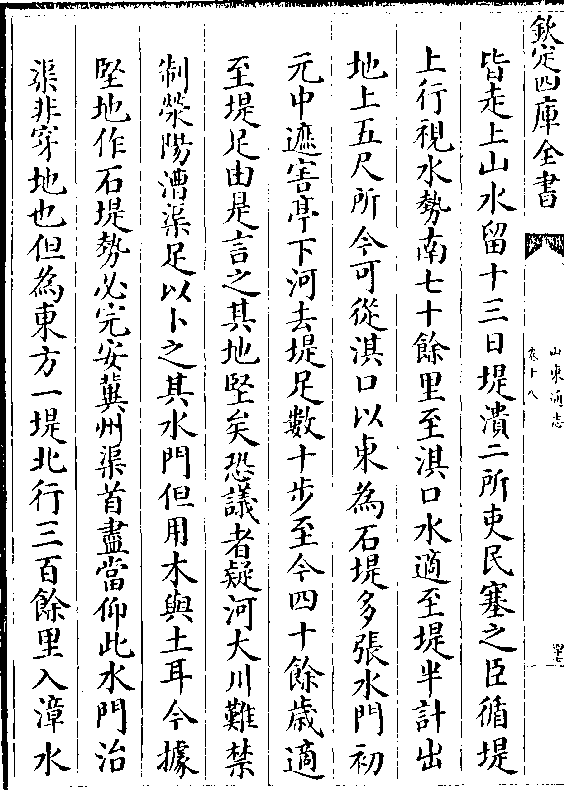 欽定四庫全書
山東通志
卷十八
皆走上山水留十三日堤潰二所吏民塞之臣循堤
上行視水勢南七十餘里至淇口水適至堤半計出
地上五尺所今可從淇口以東為石堤多張水門初
元中遮害亭下河去堤足數十步至今四十餘歲適
至堤足由是言之其地堅矣恐議者疑河大川難禁
制滎陽漕渠足以卜之其水門但用木與土耳今據
堅地作石堤勢必完安冀州渠首盡當仰此水門治
渠非穿地也但為東方一堤北行三百餘里入漳水